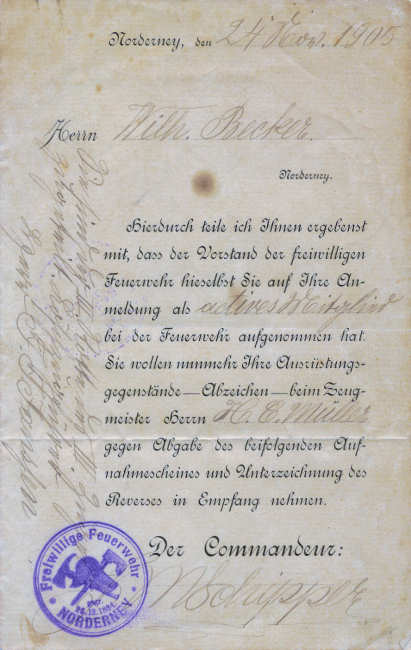 Norderney, den 24 Nov. 1905
Herrn Wilh. Becker.
Norderney.
Hierdurch teile ich Ihnen ergebenst
mit, dass der Vorstand der freiwilligen
Feuerwehr hieselbst Sie auf Ihre An-
meldung als actives Mitglied
bei der Feuerwehr aufgenommen hat.
Sie wollen nunmehr Ihre Ausrüstungs-
gegenstände—Abzeichen—beim Zeug-
meister Herrn H. E. Müller
gegen Abgabe des beifolgenden Auf-
nahmescheines und Unterzeichnung des
Reverses in Empfang nehmen.
Der Commandeur:
Freiwillige Feuerwehr
NORDERNEY